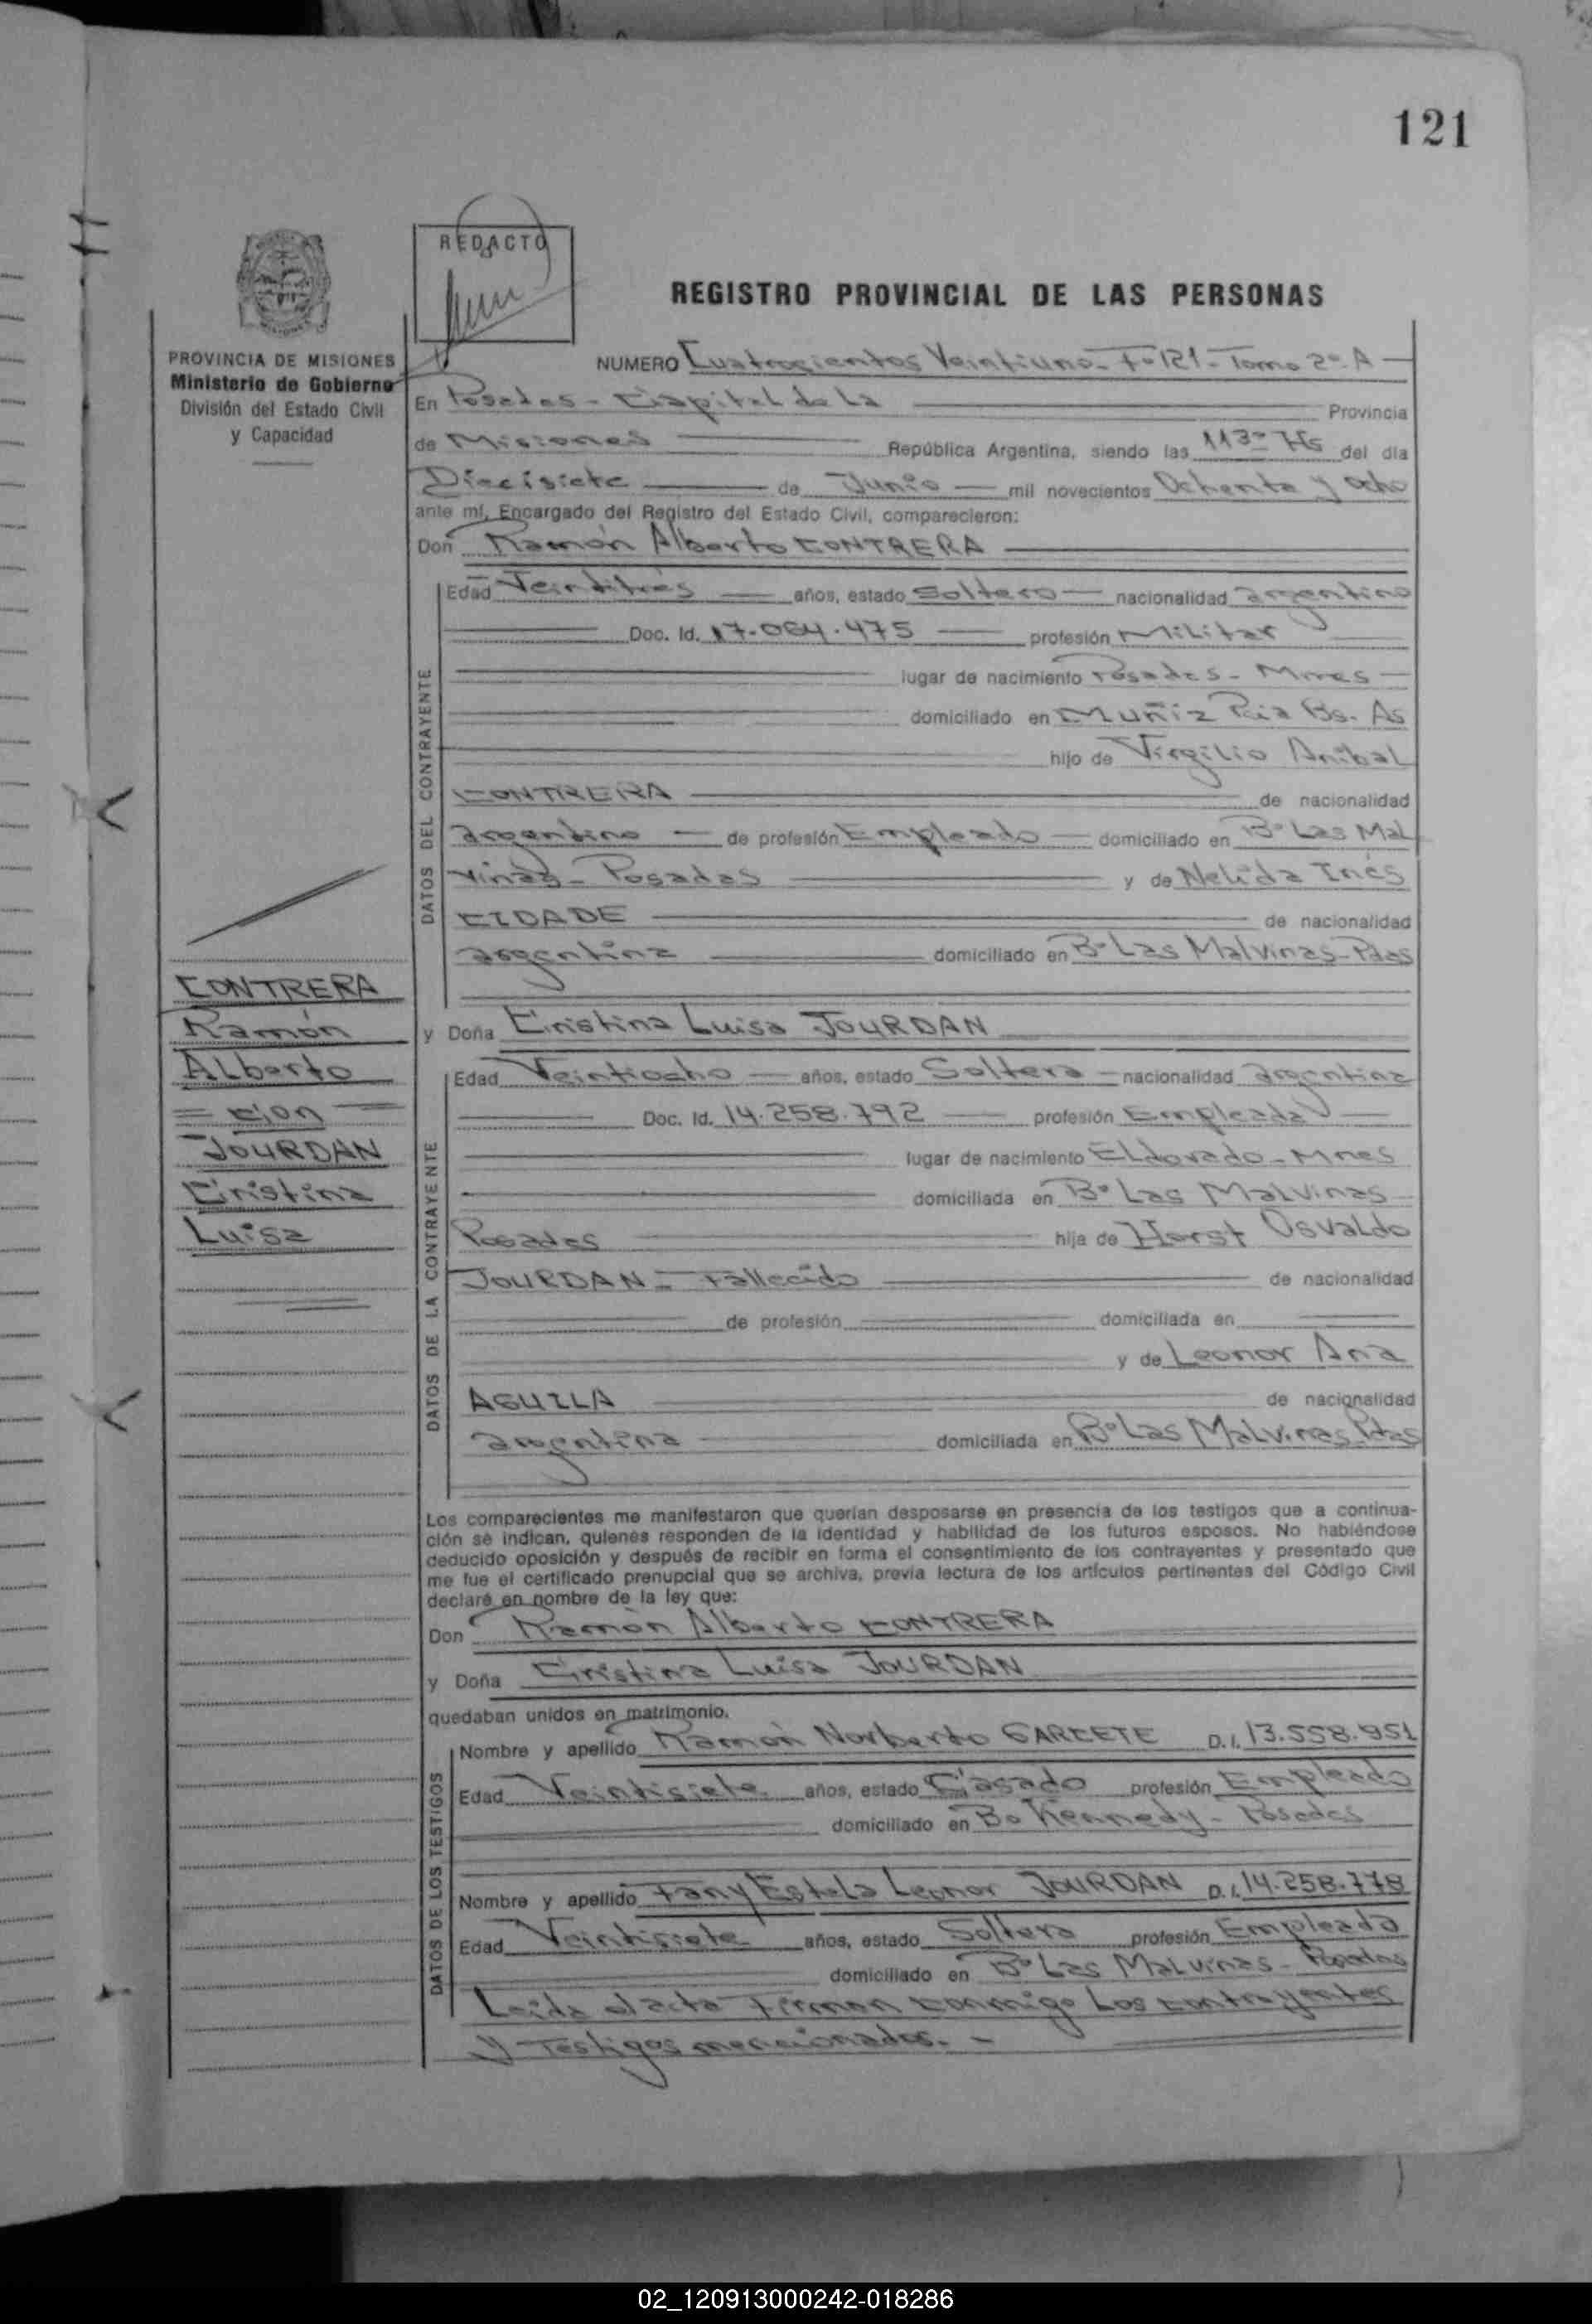 121
REDACTO
REGISTRO PROVINCIAL DE LAS PERSONAS
PROVINCIA DE MISIONES
Ministerio de Gobierno
División del Estado Civil
y Capacidad
NUMERO Cuatrocientos Veintiuno - Fº 121 - Tomo 2º A
En Posadas - Capital de la Provincia
de Misiones República Argentina, siendo las 1130 Hs del día
Diecisiete de Junio mil novecientos Ochenta y ocho
ante mí, Encargado del Registro del Estado Civil, comparecieron:
Don Ramón Alberto CONTRERA
DATOS DEL CONTRAYENTE
Edad Veintitrés años, estado Soltero nacionalidad argentino
Doc. Id. 17.064.475 profesión Militar
lugar de nacimiento Posadas - Mnes
domiciliado en Muñiz Pcia Bs. As
hijo de Virgilio Anibal
CONTRERA de nacionalidad
argentino de profesión Empleado domiciliado en Bº Las Mal
vinas - Posadas y de Nelida Inés
CIDADE de nacionalidad
argentina domiciliado en Bº Las Malvinas - Pdas
y Doña Cristina Luisa JOURDAN
DATOS DE LA CONTRAYENTE
Edad Veintiocho años, estado Soltera nacionalidad argentina
Doc. Id. 14.258.792 profesión Empleada
lugar de nacimiento Eldorado - Mnes
domiciliada en Bº Las Malvinas
Posadas hija de Horst Osvaldo
JOURDAN - Fallecido de nacionalidad
de profesión domiciliada en
y de Leonor Ana
AGUILA de nacionalidad
argentina domiciliada en Bº Las Malvinas Pdas
CONTRERA
Ramón
Alberto
= con =
JOURDAN
Cristina
Luisa
Los comparecientes me manifestaron que querían desposarse en presencia de los testigos que a continua-
ción se indican, quienes responden de la identidad y habilidad de los futuros esposos. No habiéndose
deducido oposición y después de recibir en forma el consentimiento de los contrayentes y presentado que
me fue el certificado prenupcial que se archiva, previa lectura de los artículos pertinentes del Código Civil
declaré en nombre de la ley que:
Don Ramón Alberto CONTRERA
y Doña Cristina Luisa JOURDAN
quedaban unidos en matrimonio.
DATOS DE LOS TESTIGOS
Nombre y apellido Ramón Norberto GARCETE D.I. 13.558.951
Edad Veintisiete años, estado Casado profesión Empleado
domiciliado en Bo Kennedy - Posadas
Nombre y apellido Fany Estela Leonor JOURDAN D.I. 14.258.778
Edad Veintisiete años, estado Soltera profesión Empleada
domiciliado en Bº Las Malvinas - Posadas
Leida el acta Firman conmigo los contrayentes
y Testigos mencionados. -
02_120913000242-018286